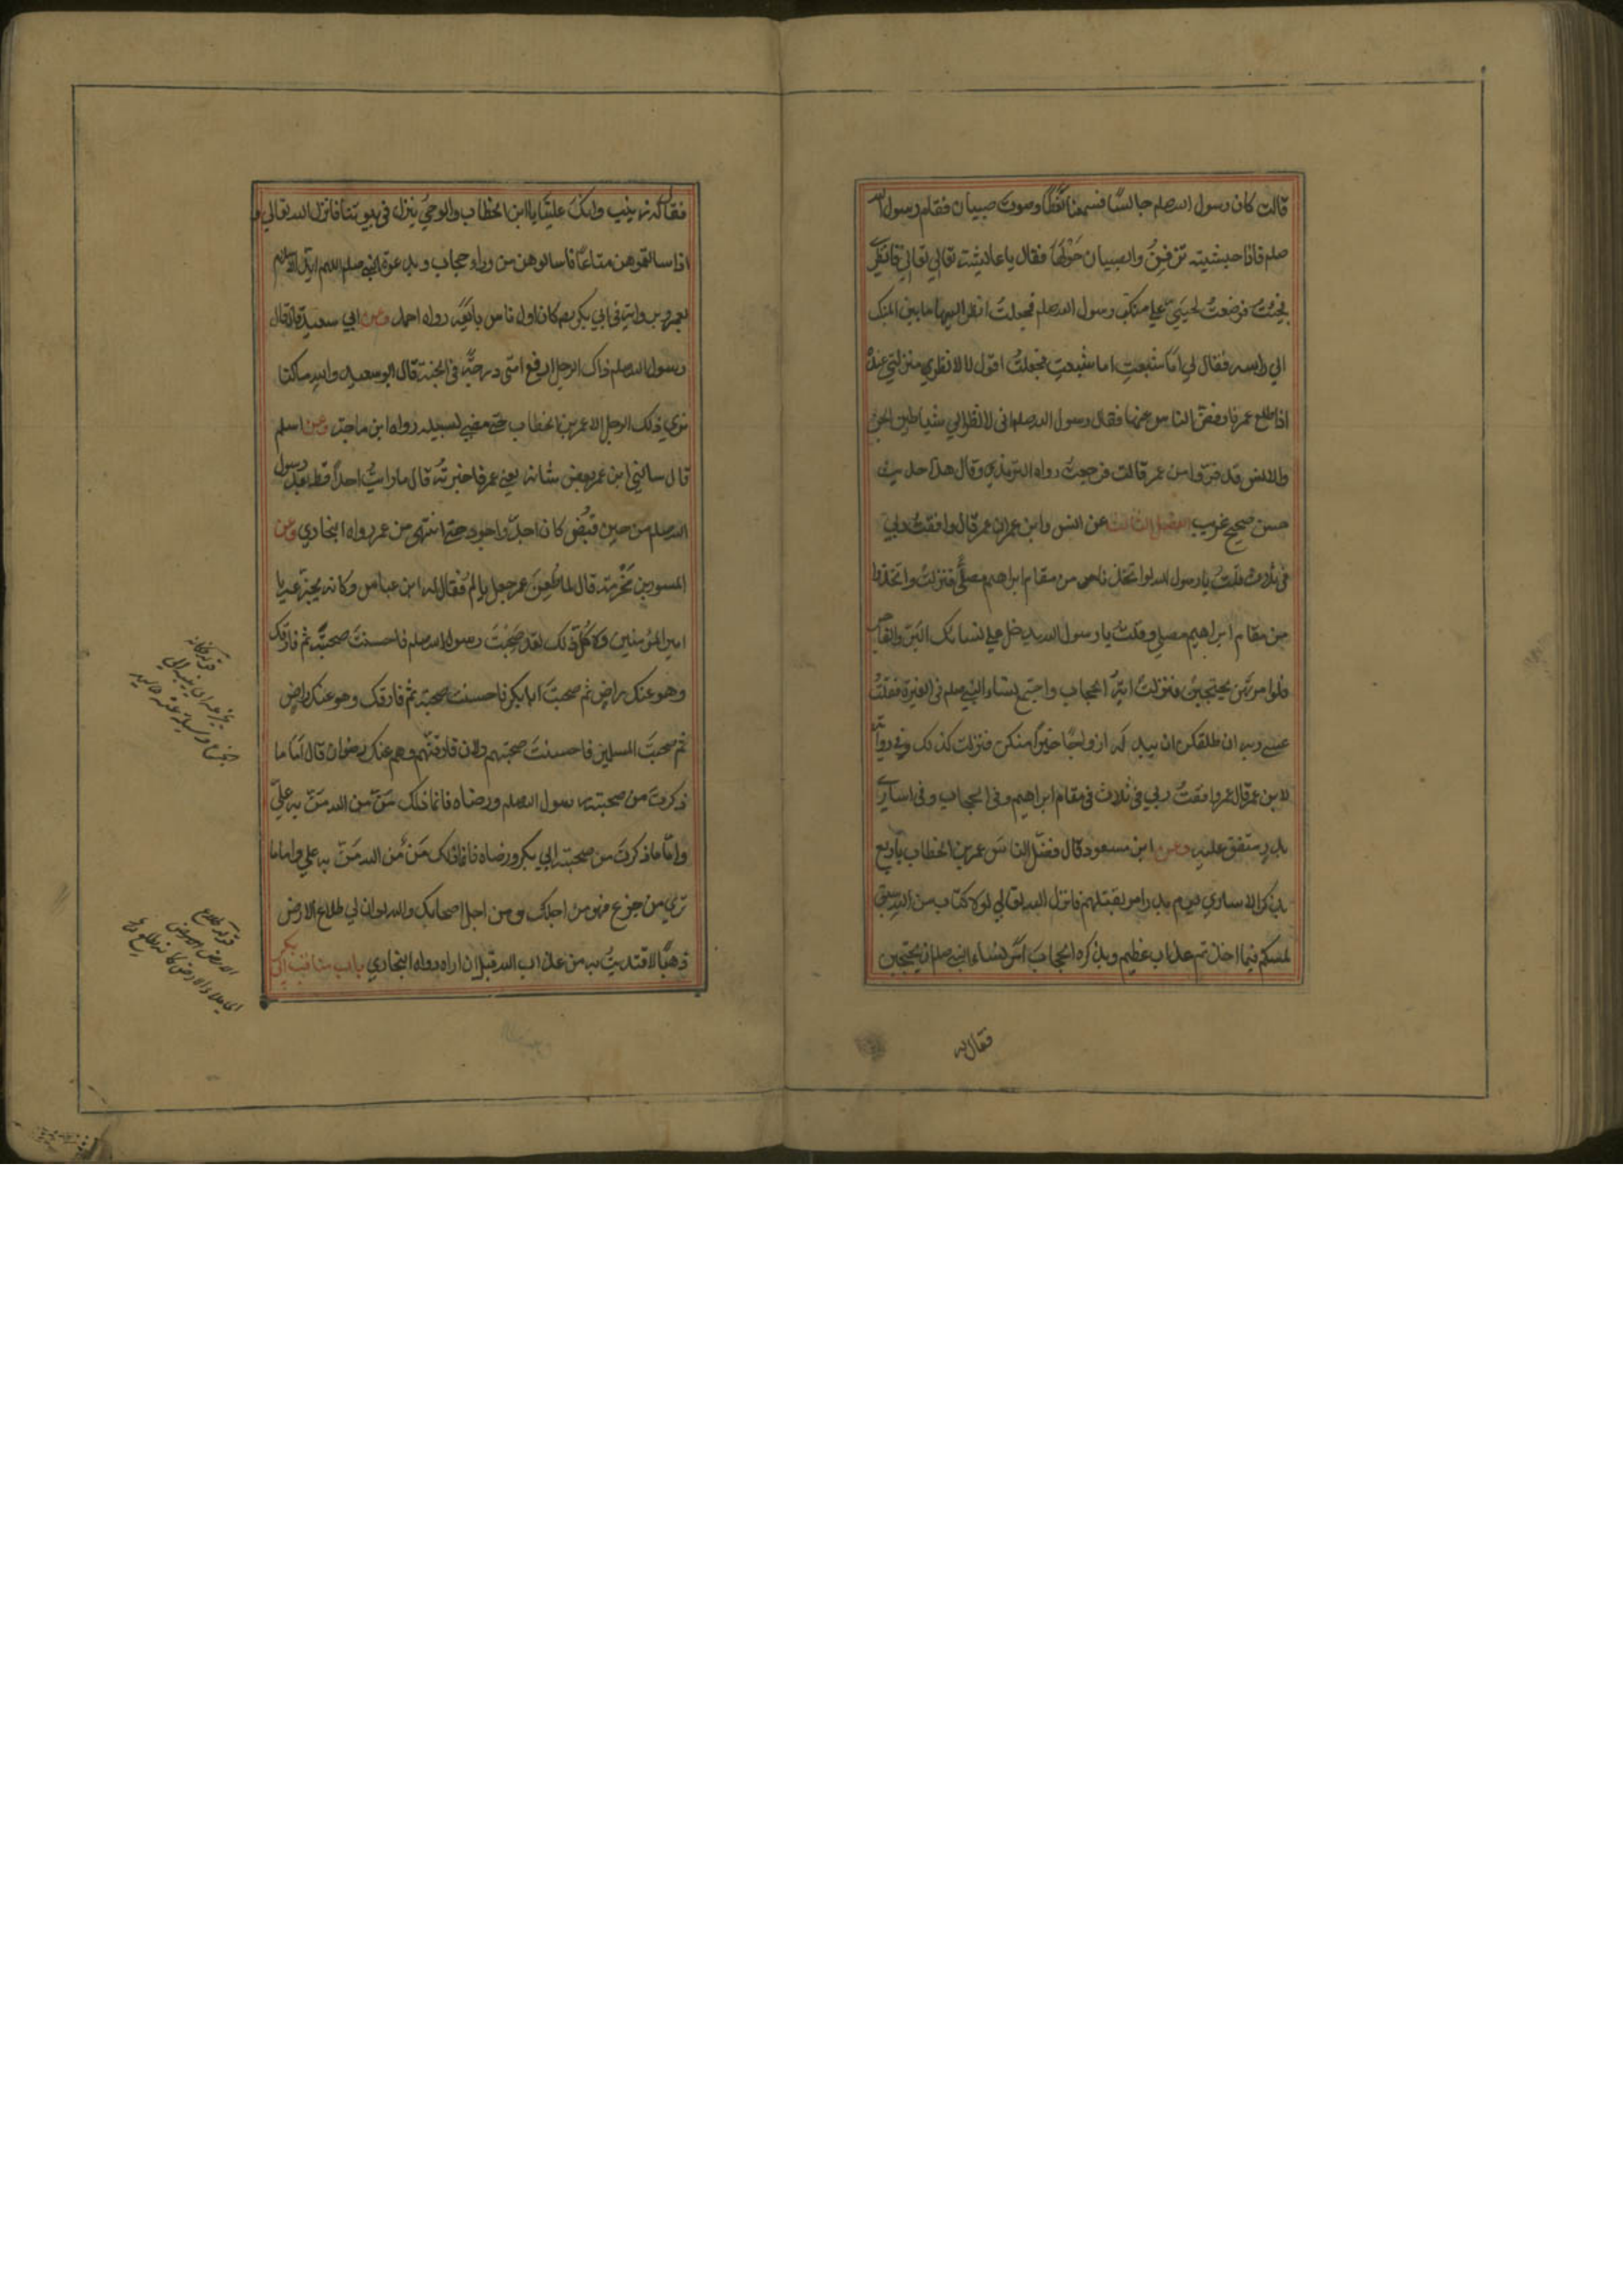 قالت كان رسول الله صلعم جالسًا فسمعنا لَغَطًا وصوت صبيان فقام رسول الله
صلعم فاذا حبشية تزفِنُ والصبيان حَوْلَها فقال يا عائشة تعالي فانظري
فجئتُ فوضعتُ لحيَيَّ علي منكب رسول الله صلعم فجعلتُ انظر اليها ما بين المنكب
الي راسه فقال لي اما شبعتِ اما شبعتِ فجعلتُ اقول لا لانظر منزلتي عنده
اذا طلع عمر فارفضّ الناس عنها فقال رسول الله صلعم اني لانظر الي شياطين الجن
والانس قد فرّوا من عمر قالت فرجعتُ رواه الترمذي وقال هذا حديث
حسن صحيح غريب الفصل الثالث عن انس وابن عمر ان عمر قال وافقتُ ربي
في ثلاث قلتُ يا رسول الله لو اتخذنا من مقام ابراهيم مصلًّي فنزلتْ واتخذوا
من مقام ابراهيم مصلي وقلتُ يا رسول الله يدخل علي نسائك البَرّ والفاجر
فلوا مرتهن يحتجبن فنزلتْ ايةُ الحجاب واجتمع نساء النبي صلعم في الغيرة فقلتُ
عسي ربه ان طلقكن ان يبدله ازواجًا خيرًا منكن فنزلت كذلك وفي رواية
لابن عمر قال عمر وافقتُ ربي في ثلاث في مقام ابراهيم وفي الحجاب وفي اساري
بدر متفق عليه وعن ابن مسعود قال فُضّل الناسَ عمر بن الخطاب باربع
بذكر الاساري يوم بدر امر بقتلهم فانزل الله تعالي لولا كتاب من الله سبق
لمسكم فيما اخذتم عذاب عظيم وبذكره الحجابَ امَرَ نساء النبي صلعم ان يحتجبن
فقال له
فقالت له زينب وانك علينا يا ابن الخطاب والوحيُ ينزل في بيوتنا فانزل الله تعالي و
اذا سالتموهن متاعًا فاسالوهن من وراء حجاب وبدعوة النبي صلعم اللهم ايّد الاسلام
بعمر وبرايه في ابي بكر كان اول ناس بايَعَه رواه احمد وعن ابي سعيد قال قال
رسول الله صلعم ذاك الرجل ارفع امتي درجةً في الجنة قال ابو سعيد والله ما كنا
نري ذلك الرجل الا عمر بن الخطاب حتي مضي لسبيله رواه ابن ماجة وعن اسلم
قال سالني ابن عمر بعض شانه يعني عمر فاخبرته قال ما رايتُ احدًا قط بعد رسول
الله صلعم من حين قُبِض كان اجدّ واجود حتي انتهي من عمر رواه البخاري وعن
المسور بن مَخْرَمة قال لما طُعِنَ عمر جعل يالَم فقال له ابن عباس وكانه يجزّعه يا
امير المومنين ولا كل ذلك لقد صَحِبْتَ رسول الله صلعم فاحسنتَ صحبته ثم فارقك
وهو عنك راض ثم صحبتَ ابا بكر فاحسنت صحبته ثم فارقك وهو عنك راض
ثم صحبتَ المسلمين فاحسنتَ صحبتهم ولان فارقتهم وهم عنك رضوان قال اما ما
ذكرتَ من صحبة رسول الله صلعم ورضاه فانما ذلك مَنّ من الله مَنّ به عليَّ
واما ما ذكرتَ من صحبة ابي بكر ورضاه فانما ذلك مَنّ من الله مَنّ به علي واما ما
تري من جزع فهو من اجلك ومن اجل اصحابك والله لو ان لي طلاع الارض
ذهبًا لافتديتُ به من عذاب الله قبل ان اراه رواه البخاري باب مناقب ابي
بكر